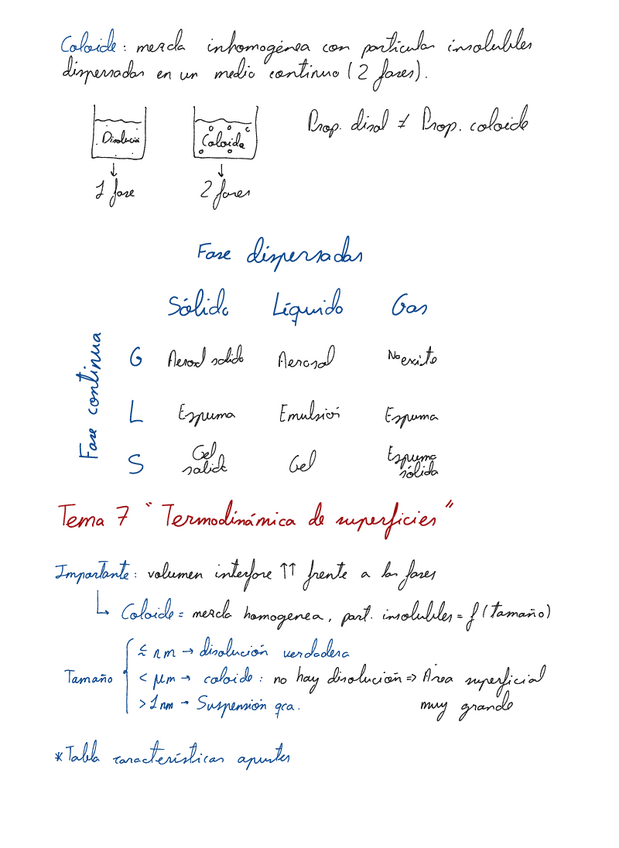 Coloide: mezcla inhomogénea con particulas insolubles
dispersadas en un medio continuo (2 fases).
Disolució Coloide Prop. disol ≠ Prop. coloide
1 fase 2 fases
Fase dispersadas
Sólido Líquido Gas
Fase continua
G Aerosol solido Aerosol No existe
L Espuma Emulsión Espuma
S Gel solide Gel Espuma sólida
Tema 7 "Termodinámica de superficies"
Importante: volumen interfase ↑↑ frente a las fases
↳ Coloide = mezcla homogenea, part. insolubles = f (tamaño)
Tamaño
≤ nm → disolución verdadera
< μm → coloide: no hay disolución ⇒ Área superficial
muy grande
>1 nm → Suspensión gca.
*Tabla características apuntes